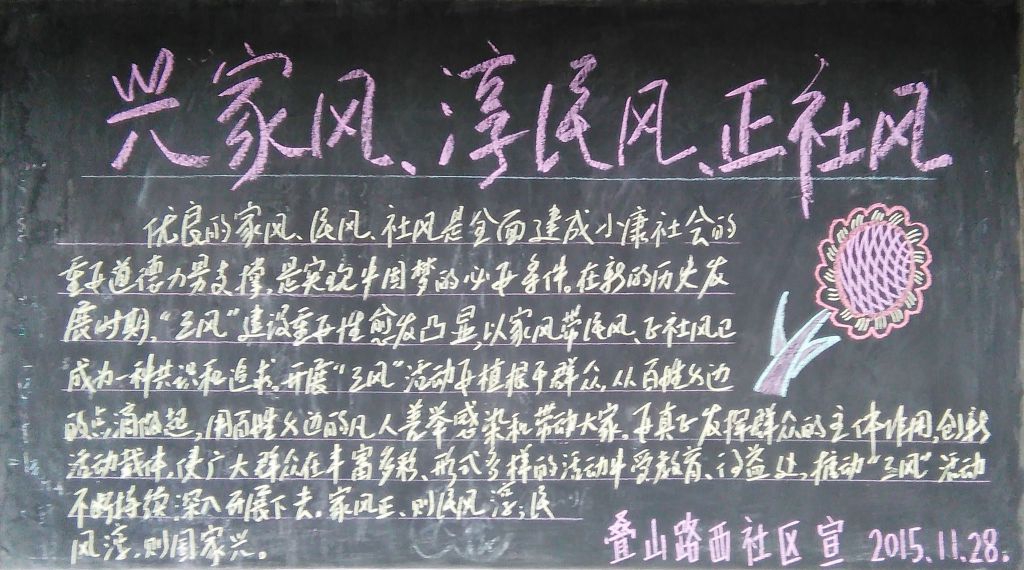 兴家风、淳民风、正社风
优良的家风、民风、社风是全面建成小康社会的
重要道德力量支撑,是实现中国梦的必要条件。在新的历史发
展时期,“三风”建设重要性愈发凸显,以家风带民风、正社风已
成为一种共识和追求。开展“三风”活动要植根于群众,从百姓身边
的点滴做起,用百姓身边的凡人善举感染和带动大家。要真正发挥群众的主体作用,创新
活动载体,使广大群众在丰富多彩、形式多样的活动中受教育、得益处,推动“三风”活动
不断持续、深入开展下去。家风正、则民风淳;民
风淳,则国家兴。
叠山路西社区宣 2015.11.28.